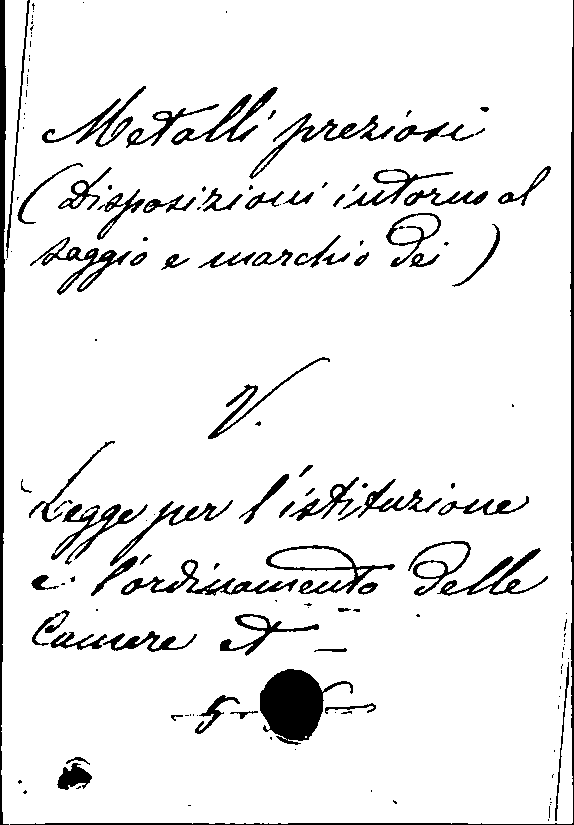 Metalli preziosi
(Disposizioni intorno al
saggio e marchio dei)
V.
Legge per l'istituzione
e l'ordinamento delle
Camere